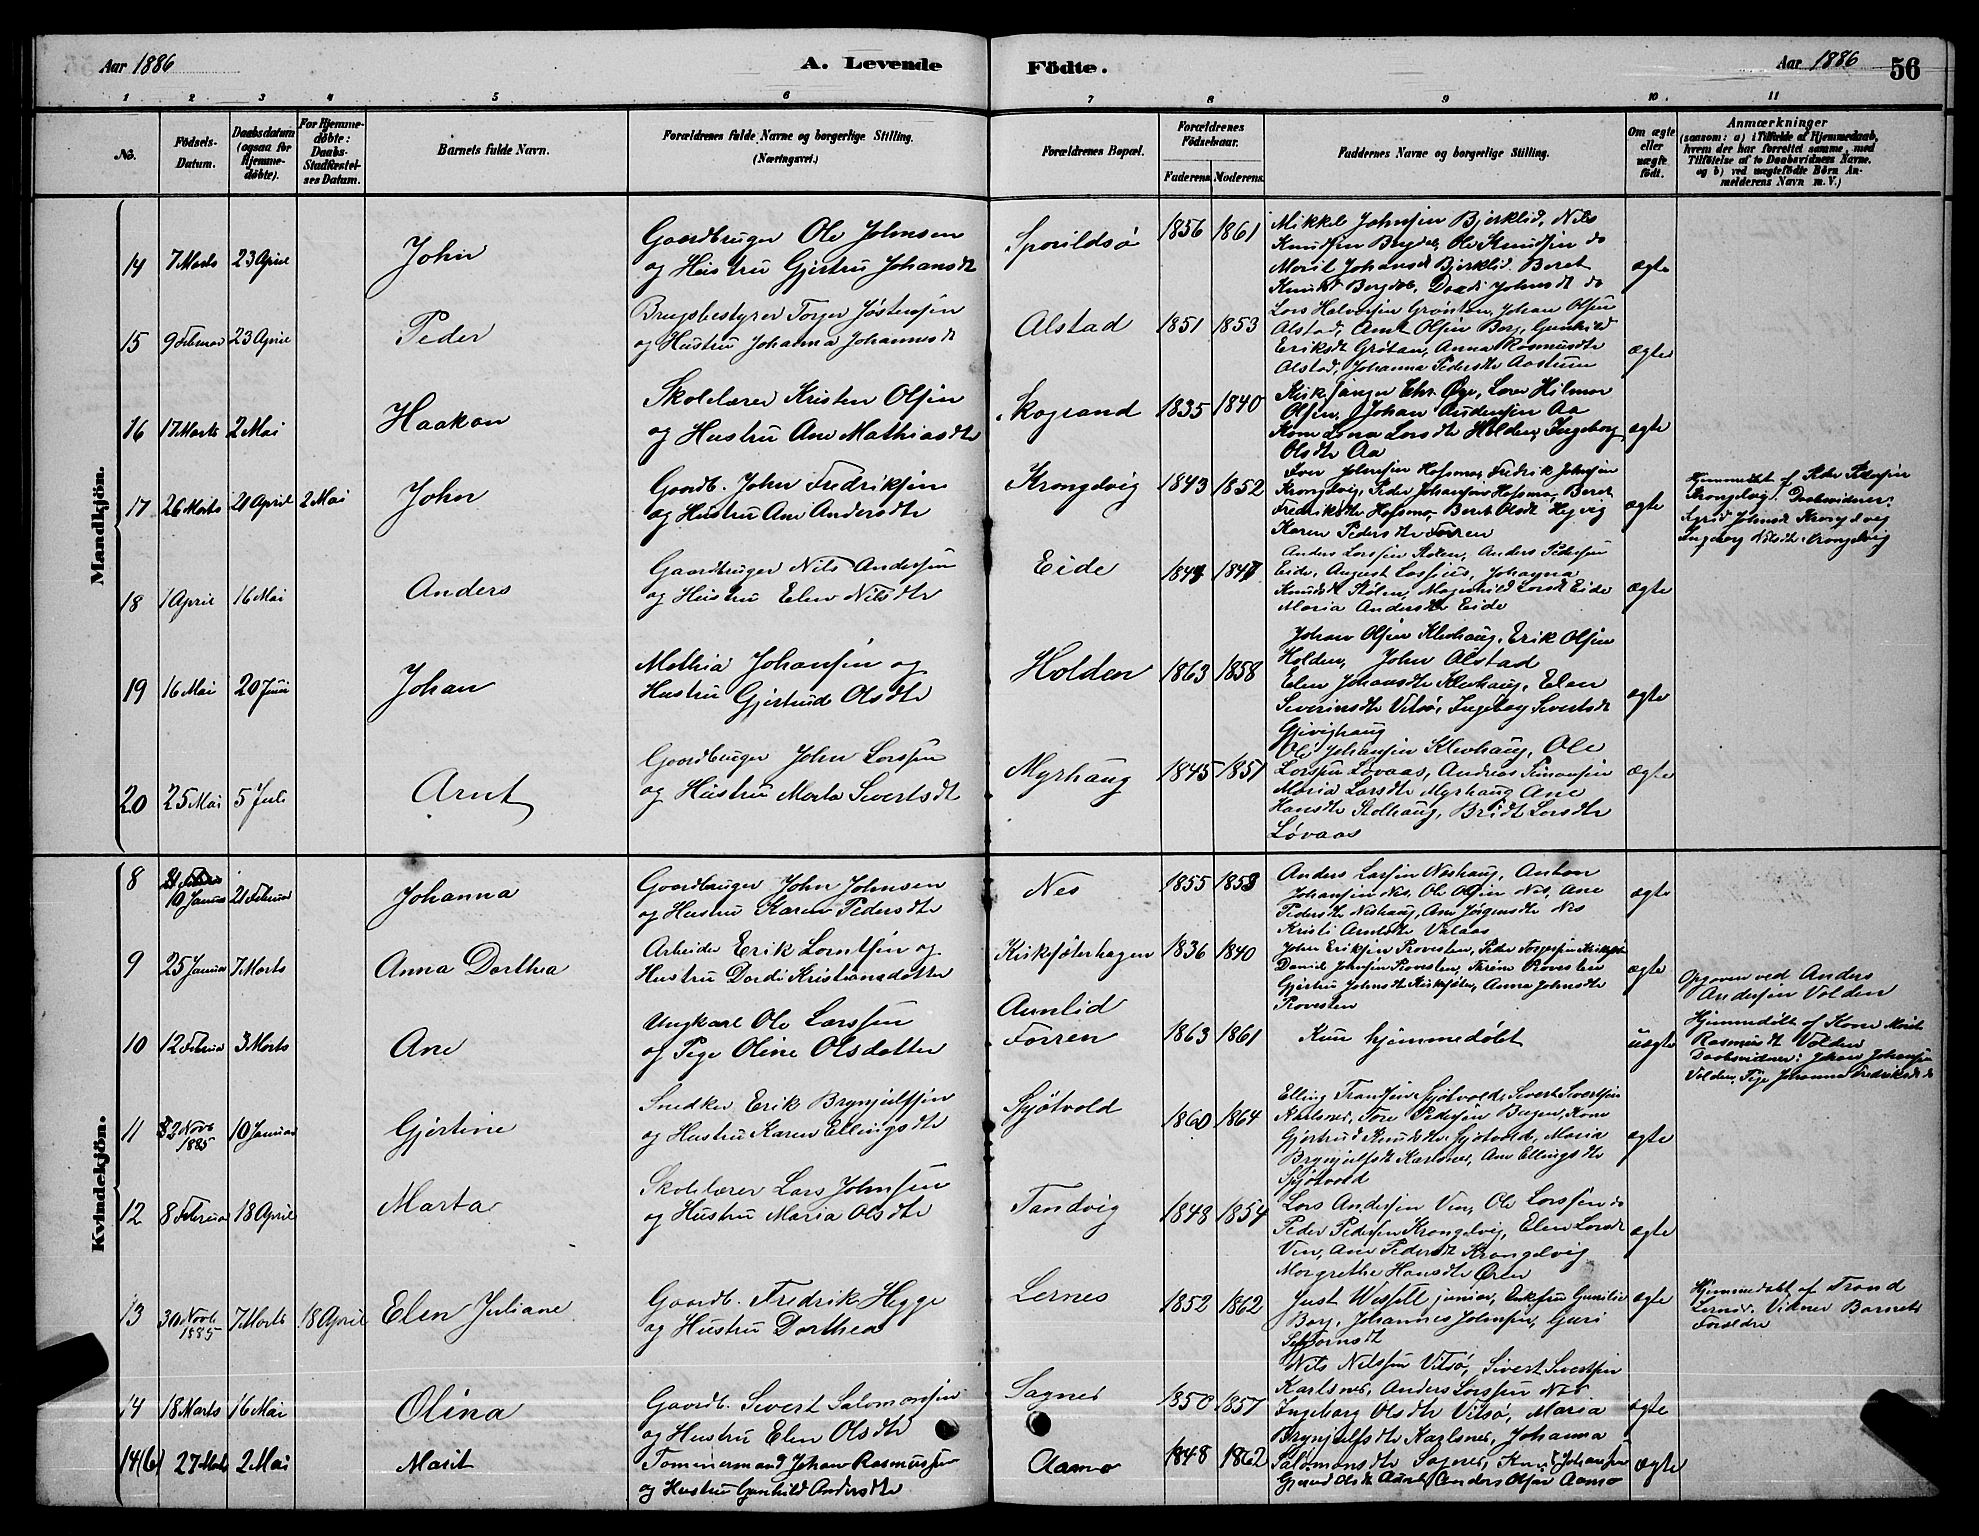 Aar 1886
A. Levende
Fødte.
Aar 1886
56
1 2 3 4 5 6 7 8 9 10 11
No.
Fødsels-Datum.
Daabsdatum (ogsaa for Hjemmedøbte).
For Hjemmedøbte: Daabs-Stadfæstelses Datum.
Barnets fulde Navn.
Forældrenes fulde Navne og borgerlige Stilling. (Næringsvei.)
Forældrenes Bopæl.
Forældrenes Fødselsaar.
Faderens. Moderens.
Faddernes Navne og borgerlige Stilling.
Om ægte eller uægte født.
Anmærkninger
(saasom: a) i Tilfælde af Hjemmedaab,
hvem der har forrettet samme, med
Tilføielse af to Daabsvidners Navne.
og b) ved uægtefødte Børn An-
melderens Navn m. V.)
Mandkjön.
14 7 Marts 23 April John
Gaardbruger Ole Johnsen
og Hustru Gjertru Johansdt
1856 1861
Mikkel Johnsen Bjerklid, Nils
Knudsen Bergdal, Ole Knudsen do
Marit Johansd Bjerklid, Beret
ægte
15 9 Februar 23 April Peder
Brugsbestyrer Torger Jøstensen
og Hustru Johanna Johannesdt
Alstad 1851 1853
Lars Halvorsen Grøntan, Johan Olsen
Alstad, Arnt Olsen Berg, Gunhild
Eriksdt Grøtan, Anna Rasmusdtr
Alstad, Johanna Pedersdtr Aastrum
ægte
16 17 Marts 2 Mai Haakon
Skolelærer Kristen Olsen
og Hustru Ane Mathiasdtr
Skogrand 1835 1840
Kirkesanger Chr. Øye, Lorn Hilmar
Olsen, Johan Andersen Aa
Kone Lena Larsdtr Holden, Ingeborg
Olsdtr Aa
ægte
17 26 Marts 21 April 2 Mai John
Gaardb. John Fredriksen
og Hustru Ane Andersdtr
Krongelvig 1843 1852
Iver Johnsen Hofsmo, Fredrik Johnsen
Krongelvig, Peder Johansen Hofsmo, Beret
Fredriksdtr Hofsmo, Beret Olsdt Hegvig
Karen Pedersdtr Forren
ægte
Hjemmedøbt af Peder Pedersen
Krongelvig. Daabsvidner:
Sigrid Johnsdt Krongelvig
Ingeborg Nilsdtr Krongelvig
18 1 April 16 Mai Anders
Gaardbruger Nils Andersen
og Hustru Elen Nilsdtr
Eide 1844 1847
Anders Larssen Stølen, Anders Pedersen
Eide, August Lossius, Johanna
Knudsdt Stølen, Magnhild Larsdt Eide
Maria Andersdtr Eide
ægte
19 16 Mai 20 Juni Johan
Mathias Johansen og
Hustru Gjertrud Olsdtr
Holden 1863 1858
Johan Olsen Klevhaug, Erik Olsen
Holden, John Alstad
Elen Johansdtr Klevhaug, Elen
Severinsdtr Vitsø, Ingeborg Sivertsdt
Gjevighaug
ægte
20 25 Mai 5 Juli Arnt
Gaardbruger John Larssen
og Hustru Marta Sivertsdt
Myrhaug 1845 1851
Ole Johansen Klevhaug, Ole
Larssen Løvaas, Andreas Simonsen
Maria Larsdtr Myrhaug Ane
Hansdtr Stolhaug, Bridt Larsdtr
Løvaas
ægte
Kvindekjön.
8 10 Januar 21 Februar Johanna
Gaardbruger John Johnsen
og Hustru Karen Pedersdtr
Nes 1855 1853
Anders Larsen Neshaug, Anton
Johansen Nes, Ole Olsen Nes, Ane
Pedersdtr Neshaug, Ane Jørgensdtr Nes
Kristi Arntsdtr Valaas
ægte
9 25 Januar 7 Marts Anna Dorthea
Arbeider Erik Larntsen og
Hustru Dordi Kristiansdatter
Kirksæterhagen 1836 1840
John Eriksen Provesten, Peder Torgersen Kirksæter
Daniel Jonsen Provesten, Trine Provesten
Gjertru Johnsdt Kirksæter, Anna Johnsdtr
Provesten
ægte
10 12 Februar 3 Marts Ane
Ungkarl Ole Larssen
og Pige Oline Olsdatter
Aunlid
Forren 1863 1861
Kun hjemmedøbt
uægte
Opgaven ved Anders
Andersen Volden
Hjemmedøbt af Kone Marit
Rasmusdt Volden
Daabsvidner: Johan Johansen
Volden, Pige Johanna Fredriksdt do
11 22 Novb 1885 10 Januar Gjertine
Snedker Erik Brynjulfsen
og Hustru Karen Ellingsdtr
Sjøtvold 1860 1864
Elling Trondsen Sjøtvold, Sivert Sivertsen
Karlsnes, Tore Pedersen Bugen, Kone
Gjertrud Knudsdtr Sjøtvold, Maria
Brynjulfsdt Karlsnes, Ane Ellingsdtr
Sjøtvold
ægte
12 8 Februar 18 April Marta
Skolelærer Lars Johnsen
og Hustru Maria Olsdtr
Tandvig 1848 1854
Lars Andersen Ven, Ole Larssen do
Peder Pedersen Krongelvig, Elen Larsdt
Ven, Ane Pedersdt Krongelvig
Margrethe Hansdtr Ören
ægte
13 30 Novb 1885 7 Marts 18 April Elen Juliane
Gaardb. Fredrik Hegge
og Hustru Dorthea
Lernes 1852 1862
Just Wessell junior, Eriksen
Borg, Johannes Johnsen, Guri
ægte
Hjemmedøbt af Trond
Lernes. Vidner Barnets
Forældre
14 18 Marts 16 Mai Olina
Gaardb. Sivert Salomonsen
og Hustru Elen Olsdtr
Sagnes 1850 1857
Nils Nilssen Vitsø, Sivert Sivertsen
Karlsnes, Anders Larssen Nes
Ingeborg Olsdtr Vitsø, Maria
Brynjulfsdtr Karlsnes, Johanna
Salomonsdtr Sagnes
ægte
14(b) 27 Marts 2 Mai Marit
Tømmermand Johan Rasmussen
og Hustru Gunhild Andersdtr
Aamo 1848 1862
Knut Johansen
Anders Olsen Aamo
ægte